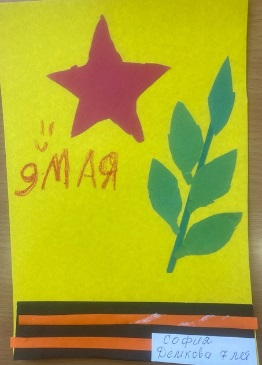 9 МАЯ
София
Демкова 7 лет